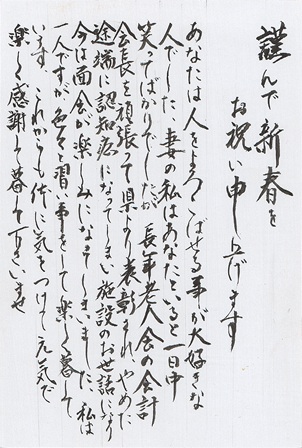 謹んで新春を
お祝い申し上げます
あなたは人をよろこばせる事が大好きな
人でした、妻の私はあなたといると一日中
笑ってばかりでしたが長年老人会の会計
会長を頑張って県より表彰され、やめた
途端に認知症になってしまい施設のお世話になり
今は面会が楽しみになってしまいました、私は
一人ですが色々と習い事をして楽しく暮して
います これからも体に気をつけて元気で
楽しく感謝して暮して下さいませ